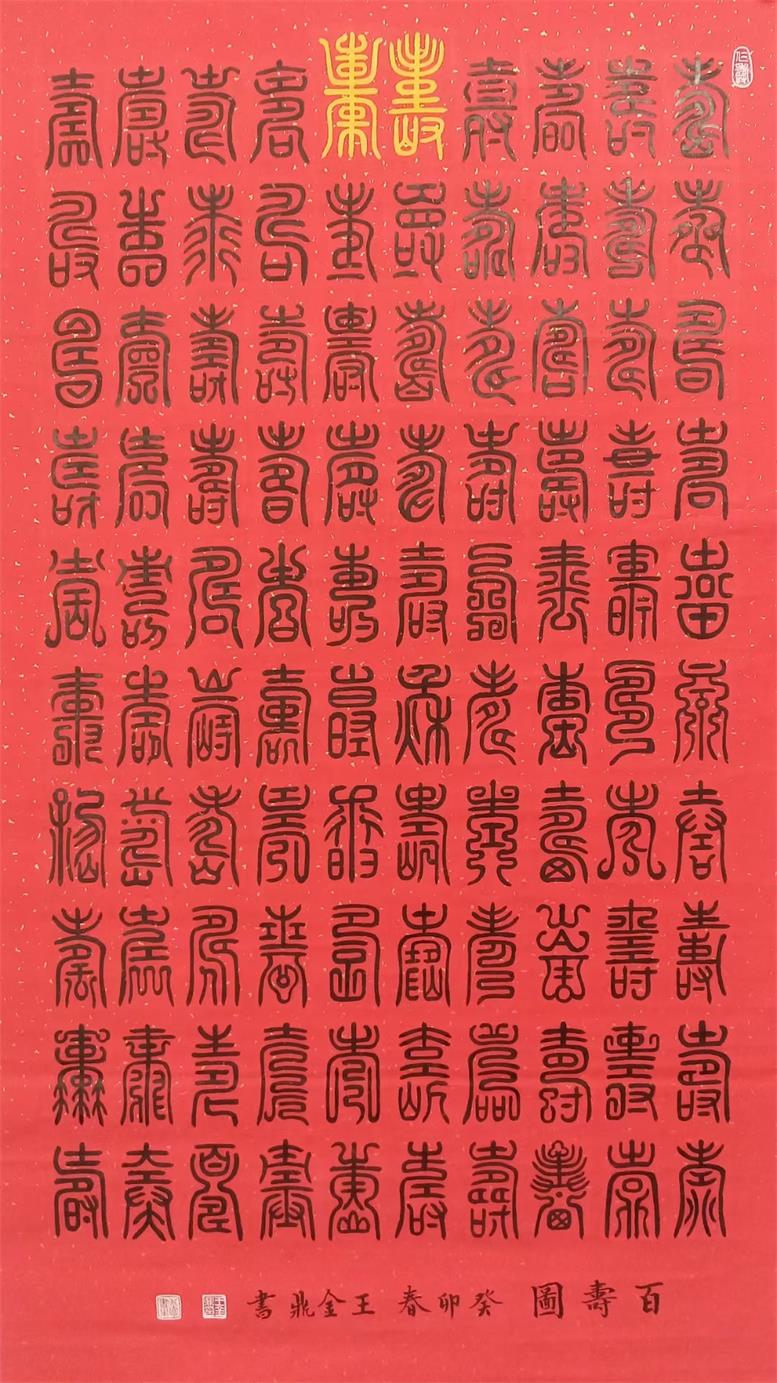 壽壽壽壽壽壽壽壽壽壽
壽壽壽壽壽壽壽壽壽壽
壽壽壽壽壽壽壽壽壽壽
壽壽壽壽壽壽壽壽壽壽
壽壽壽壽壽壽壽壽壽壽
壽壽壽壽壽壽壽壽壽壽
壽壽壽壽壽壽壽壽壽壽
壽壽壽壽壽壽壽壽壽壽
壽壽壽壽壽壽壽壽壽壽
壽壽壽壽壽壽壽壽壽壽
百壽圖 癸卯春 王金鼎書